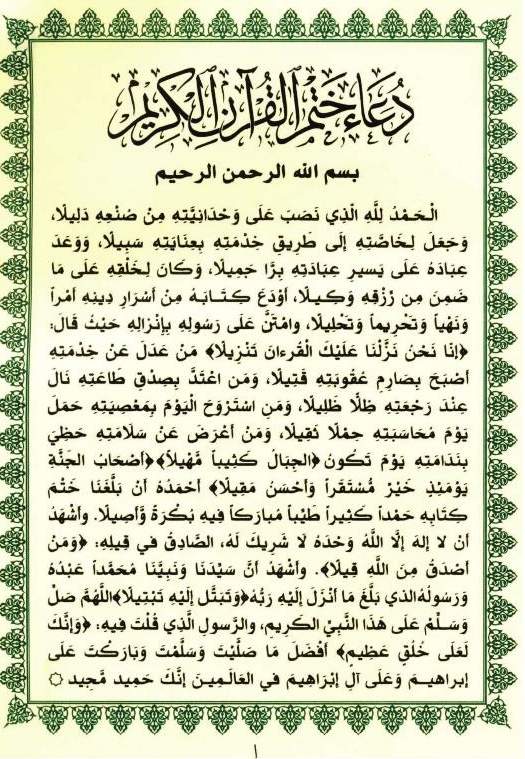 دُعَاءُ خَتْمِ ٱلْقُرْآنِ ٱلْكَرِيمِ
بسم الله الرحمن الرحيم
الْحَمْدُ لِلَّهِ الَّذِي نَصَبَ عَلَى وَحْدَانِيَّتِهِ مِنْ صُنْعِهِ دَلِيلًا،
وَجَعَلَ لِخَاصَّتِهِ إِلَى طَرِيقِ خِدْمَتِهِ بِعِنَايَتِهِ سَبِيلًا، وَوَعَدَ
عِبَادَهُ عَلَى يَسيرِ عِبَادَتِهِ بِرًّا جَمِيلًا، وَكَانَ لِخَلْقِهِ عَلَى مَا
ضَمِنَ مِن رِزْقِهِ وَكِيلًا، أَوْدَعَ كِتَابَهُ مِنْ أَسْرَارِ دِينِهِ أَمْراً
وَنَهْياً وَتَحْرِيماً وَتَحْلِيلًا، وامْتَنَّ عَلَى رَسُولِهِ بِإِنْزَالِهِ حَيْثُ قَالَ:
﴿إِنَّا نَحْنُ نَزَّلْنَا عَلَيْكَ الْقُرءانَ تَنْزِيلًا﴾ مَنْ عَدَلَ عَنْ خِدْمَتِهِ
أَصْبَحَ بِصَارِمِ عُقُوبَتِهِ قَتِيلًا، وَمَن اعْتَدَّ بِصِدْقِ طَاعَتِهِ نَالَ
عِنْدَ رَجْعَتِهِ ظِلًّا ظَلِيلًا، وَمَنِ اسْتَرْوَحَ الْيَوْمَ بِمَعْصِيَتِهِ حَمَلَ
يَوْمَ مُحَاسَبَتِهِ حِمْلًا ثَقِيلًا، وَمَنْ أَعْرَضَ عَنْ سَلَامَتِهِ حَظِيَ
بِنَدَامَتِهِ يَوْمَ تَكُونُ ﴿الجِبَالُ كَثِيباً مَّهِيلاً﴾ ﴿أَصْحَابُ الجَنَّةِ
يَوْمَئِذٍ خَيْرٌ مُّسْتَقَرّاً وَأَحْسَنُ مَقِيلًا﴾ أَحْمَدُهُ أَنْ بَلَّغَنَا خَتْمَ
كِتَابِهِ حَمْداً كَثِيراً طَيِّباً مُبَارَكاً فِيهِ بُكْرَةً وَّأَصِيلًا. وَأَشْهَدُ
أَنْ لا إِلهَ إِلَّا اللَّهُ وَحْدَهُ لَا شَرِيكَ لَهُ، الصَّادِقُ في قِيلِهِ: ﴿وَمَنْ
أَصْدَقُ مِنَ اللَّهِ قِيلًا﴾. وأَشْهَدُ أَنَّ سَيِّدَنَا وَنَبِيَّنَا مُحَمَّداً عَبْدُهُ
وَرَسُولُهُ الذي بَلَّغَ مَا أَنْزَلَ إِلَيْهِ رَبُّهُ ﴿وَتَبَتَّلْ إِلَيْهِ تَبْتِيلًا﴾ اللَّهُمَّ صَلِّ
وَسَلِّمْ عَلَى هَذَا النَّبِيِّ الكَرِيمِ، والرَّسولِ الَّذِي قُلْتَ فِيهِ: ﴿وَإِنَّكَ
لَعَلَى خُلُقٍ عَظِيمٍ﴾ أَفْضَلَ مَا صَلَّيْتَ وَسَلَّمْتَ وَبَارَكْتَ عَلَى
إبراهيمَ وَعَلَى آلِ إِبْرَاهِيمَ في العَالَمِينَ إِنَّكَ حَمِيد مَّجِيد ۝
١